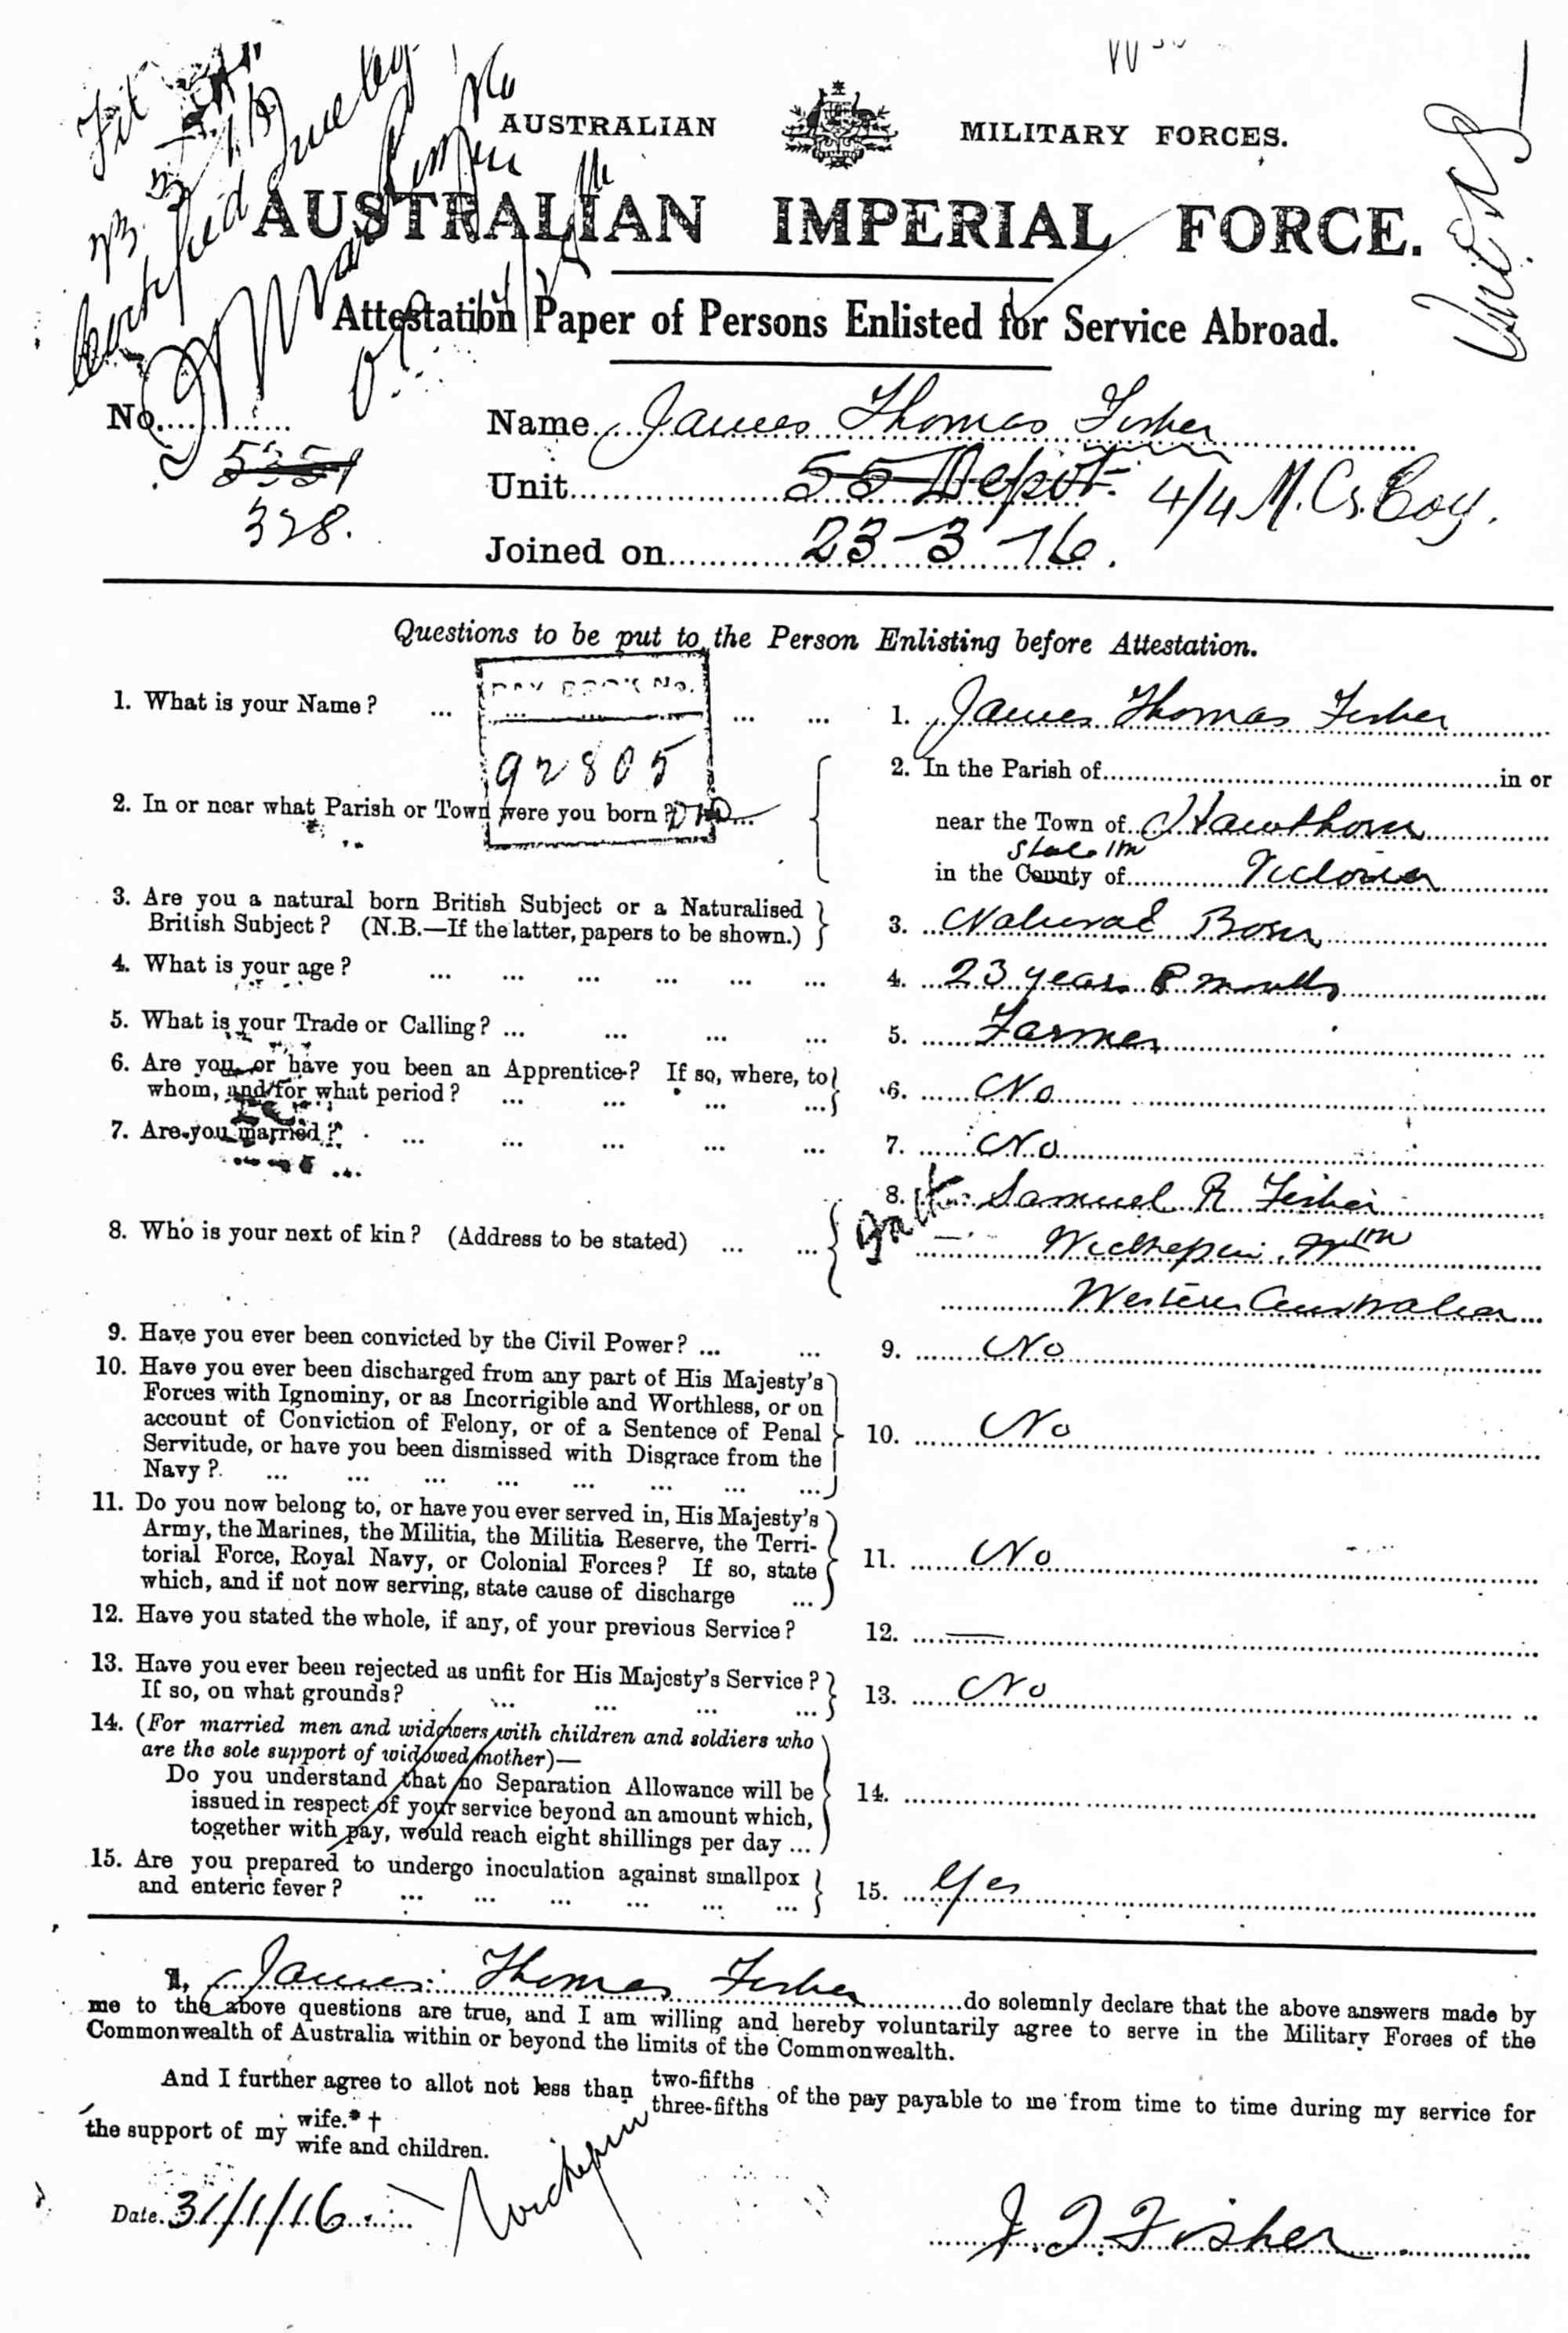 AUSTRALIAN MILITARY FORCES.
AUSTRALIAN IMPERIAL FORCE.
Attestation Paper of Persons Enlisted for Service Abroad.
No. Name James Thomas Fisher
5551
328.
Unit 55 Depot. 4/4 M. Gs. Coy.
Joined on 23-3-16.
Questions to be put to the Person Enlisting before Attestation.
PAY BOOK No.
92805
1. What is your Name? ... ... ... 1. James Thomas Fisher
2. In or near what Parish or Town were you born? ... 2. In the Parish of in or
near the Town of Hawthorn
State
in the County of Victoria
3. Are you a natural born British Subject or a Naturalised
British Subject? (N.B.—If the latter, papers to be shown.) 3. Natural Born
4. What is your age? ... ... ... ... ... ... 4. 23 years 8 months
5. What is your Trade or Calling? ... ... ... ... 5. Farmer
6. Are you or have you been an Apprentice? If so, where, to
whom, and for what period? ... ... ... ... 6. No
7. Are you married? ... ... ... ... ... 7. No
8. Who is your next of kin? (Address to be stated) ... ... 8. Samuel R Fisher
Wickepin
Western Australia
9. Have you ever been convicted by the Civil Power? ... ... 9. No
10. Have you ever been discharged from any part of His Majesty's
Forces with Ignominy, or as Incorrigible and Worthless, or on
account of Conviction of Felony, or of a Sentence of Penal
Servitude, or have you been dismissed with Disgrace from the
Navy? ... ... ... ... ... ... ... ... 10. No
11. Do you now belong to, or have you ever served in, His Majesty's
Army, the Marines, the Militia, the Militia Reserve, the Terri-
torial Force, Royal Navy, or Colonial Forces? If so, state
which, and if not now serving, state cause of discharge ... 11. No
12. Have you stated the whole, if any, of your previous Service? 12. —
13. Have you ever been rejected as unfit for His Majesty's Service?
If so, on what grounds? ... ... ... ... 13. No
14. (For married men and widowers with children and soldiers who
are the sole support of widowed mother)—
Do you understand that no Separation Allowance will be
issued in respect of your service beyond an amount which,
together with pay, would reach eight shillings per day ... 14.
15. Are you prepared to undergo inoculation against smallpox
and enteric fever? ... ... ... ... ... ... 15. Yes
I, James Thomas Fisher do solemnly declare that the above answers made by
me to the above questions are true, and I am willing and hereby voluntarily agree to serve in the Military Forces of the
Commonwealth of Australia within or beyond the limits of the Commonwealth.
And I further agree to allot not less than two-fifths
three-fifths of the pay payable to me from time to time during my service for
the support of my wife.* †
wife and children.
Date 31/1/16. Wickepin J. T. Fisher